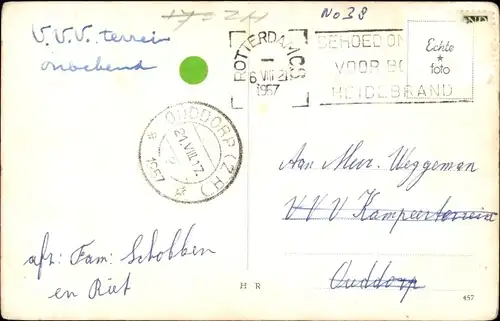 17=24
No 38
V.V.V. terrein
onbekend
ROTTERDAM CS
1957
BEHOED ON
VOOR BO
HEIDEBRAND
Echte
foto
OUDDORP (Z H)
21.VIII.17.
1957
Aan Mevr. Weggeman
V V V Kampeerterrein
Ouddorp
afz: Fam: Scholben
en Riet
H R
457